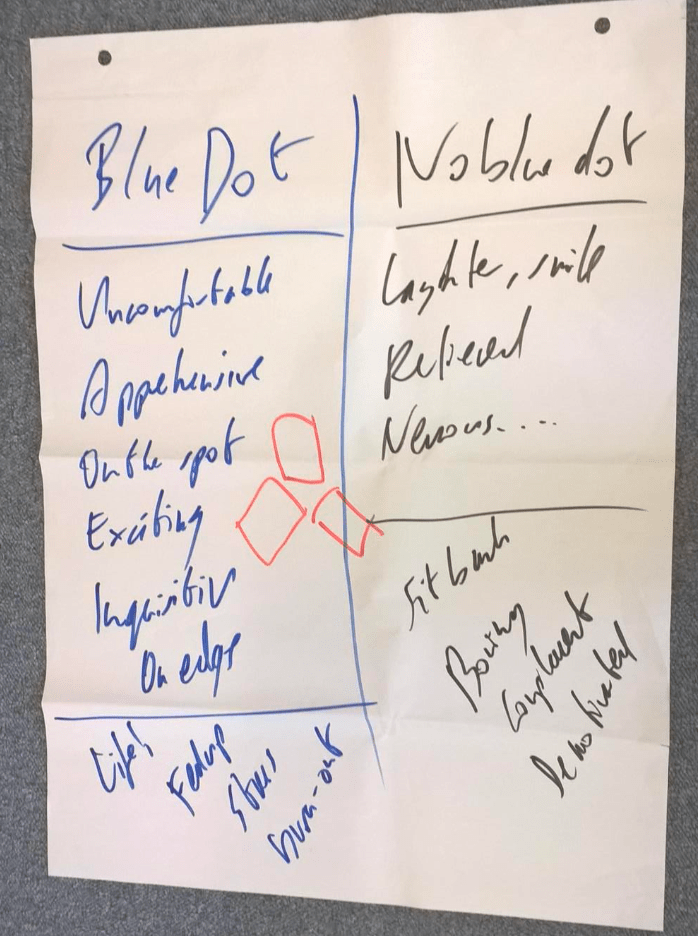 Blue Dot
Uncomfortable
Apprehensive
On the spot
Exciting
Inquisitiv
On edge
Fed up
Stress
Burn-out
No blue dot
Laughter, smile
Relieved
Nervous....
Sit back
Boring
Complacent
Demotivated